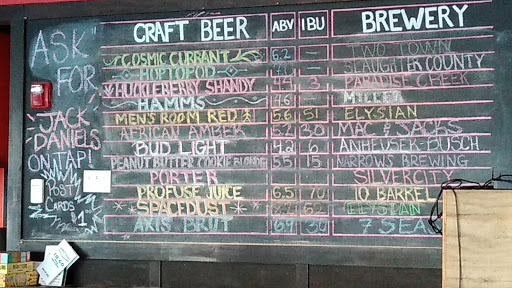 CRAFT BEER ABV IBU BREWERY
COSMIC CURRANT 6.2 — TWO TOWN
HOPTOPOD — SLAUGHTER COUNTY
HUCKLEBERRY SHANDY 3 PARADISE CREEK
HAMMS 4.6 — MILLER
MEN'S ROOM RED 5.6 51 ELYSIAN
AFRICAN AMBER 5.2 30 MAC & JACKS
BUD LIGHT 4.2 6 ANHEUSER-BUSCH
PEANUT BUTTER COOKIE BLONDE 5.5 15 NARROWS BREWING
PORTER SILVERCITY
PROFUSE JUICE 6.5 70 10 BARREL
SPACEDUST 62 ELYSIAN
AXIS BRUT 6.9 30 7 SEAS
ASK
FOR
JACK
DANIELS
ON TAP!
POST
CARDS
$1